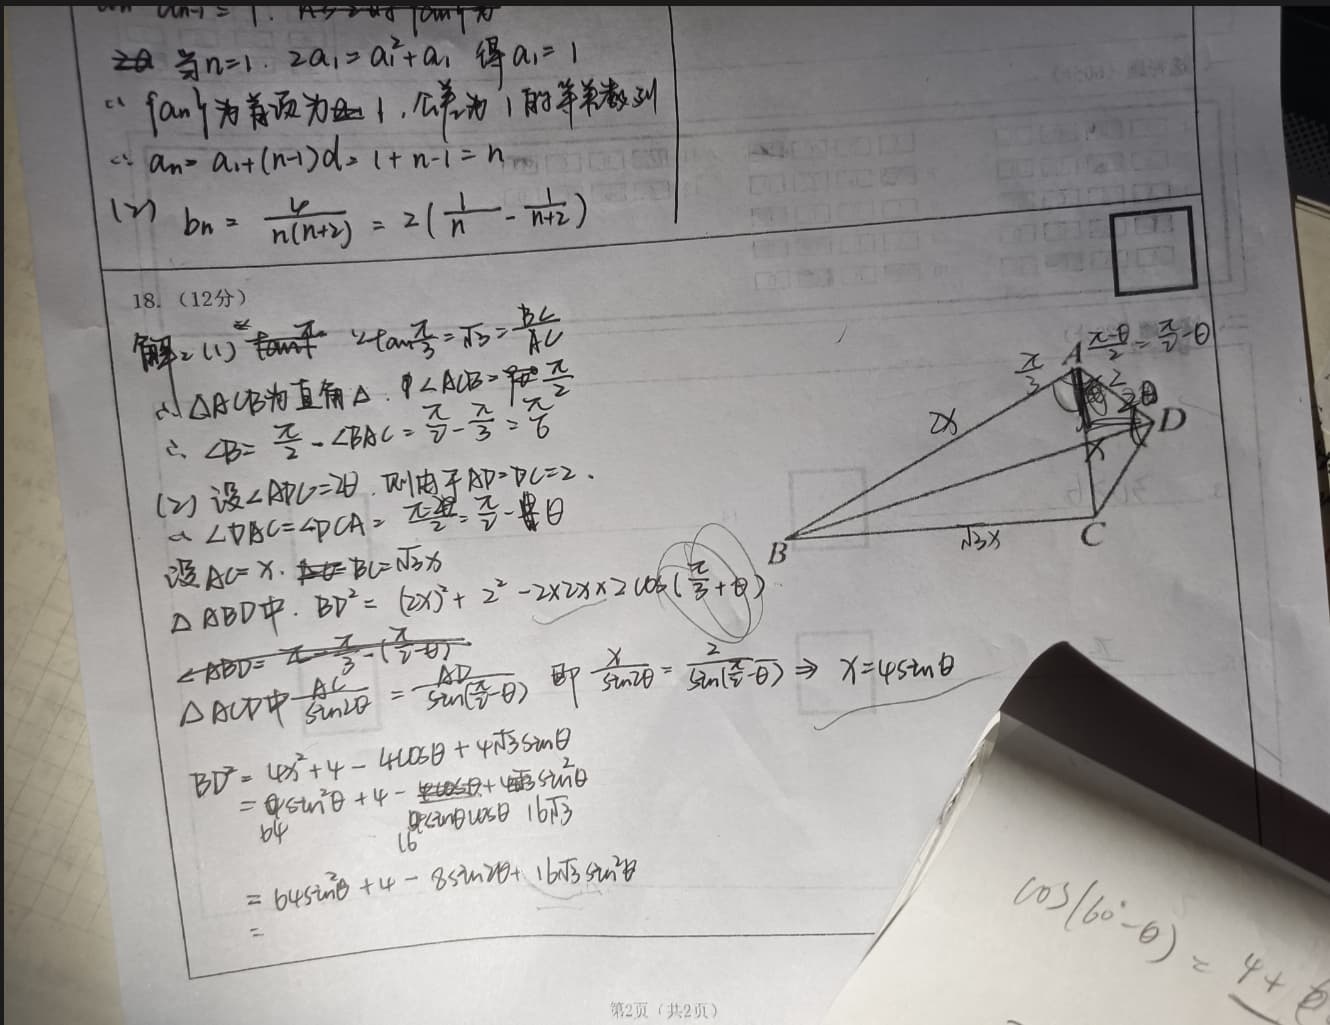 当n=1. 2a₁=a₁²+a₁ 得a₁=1
∴ {an}为首项为1,公差为1的等差数列
∴ an=a₁+(n-1)d=1+n-1=n
(2) bn=4/n(n+2)=2(1/n-1/(n+2))
18.（12分）
解:(1) ∵tanπ/3=√3=BC/AC
∴ △ACB为直角△. ∠ACB=π/2
∴ ∠B=π/2-∠BAC=π/2-π/3=π/6
(2) 设∠ADC=2θ.则由于AD=DC=2.
∴ ∠DAC=∠DCA=π-2θ/2=π/2-θ
设AC=x. BC=√3x
△ABD中. BD²=(2x)²+2²-2×2x×2cos(π/3+θ)
∠ABD=π-π/3-(π/2-θ)
△ACD中 AC/sin2θ=AD/sin(π/2-θ) 即 x/sin2θ=2/sin(π/2-θ) ⇒ x=4sinθ
BD²=4x²+4-4cosθ+4√3sinθ
=sin²θ+4- sin²θ
64 16 sinθcosθ 16√3
=64sin²θ+4-8sin2θ+16√3sin²θ
=
A
π-θ/2=π/2-θ
π/3
2
2θ
2x
D
x
B
√3x
C
cos(60°-θ)=4+
第2页（共2页）